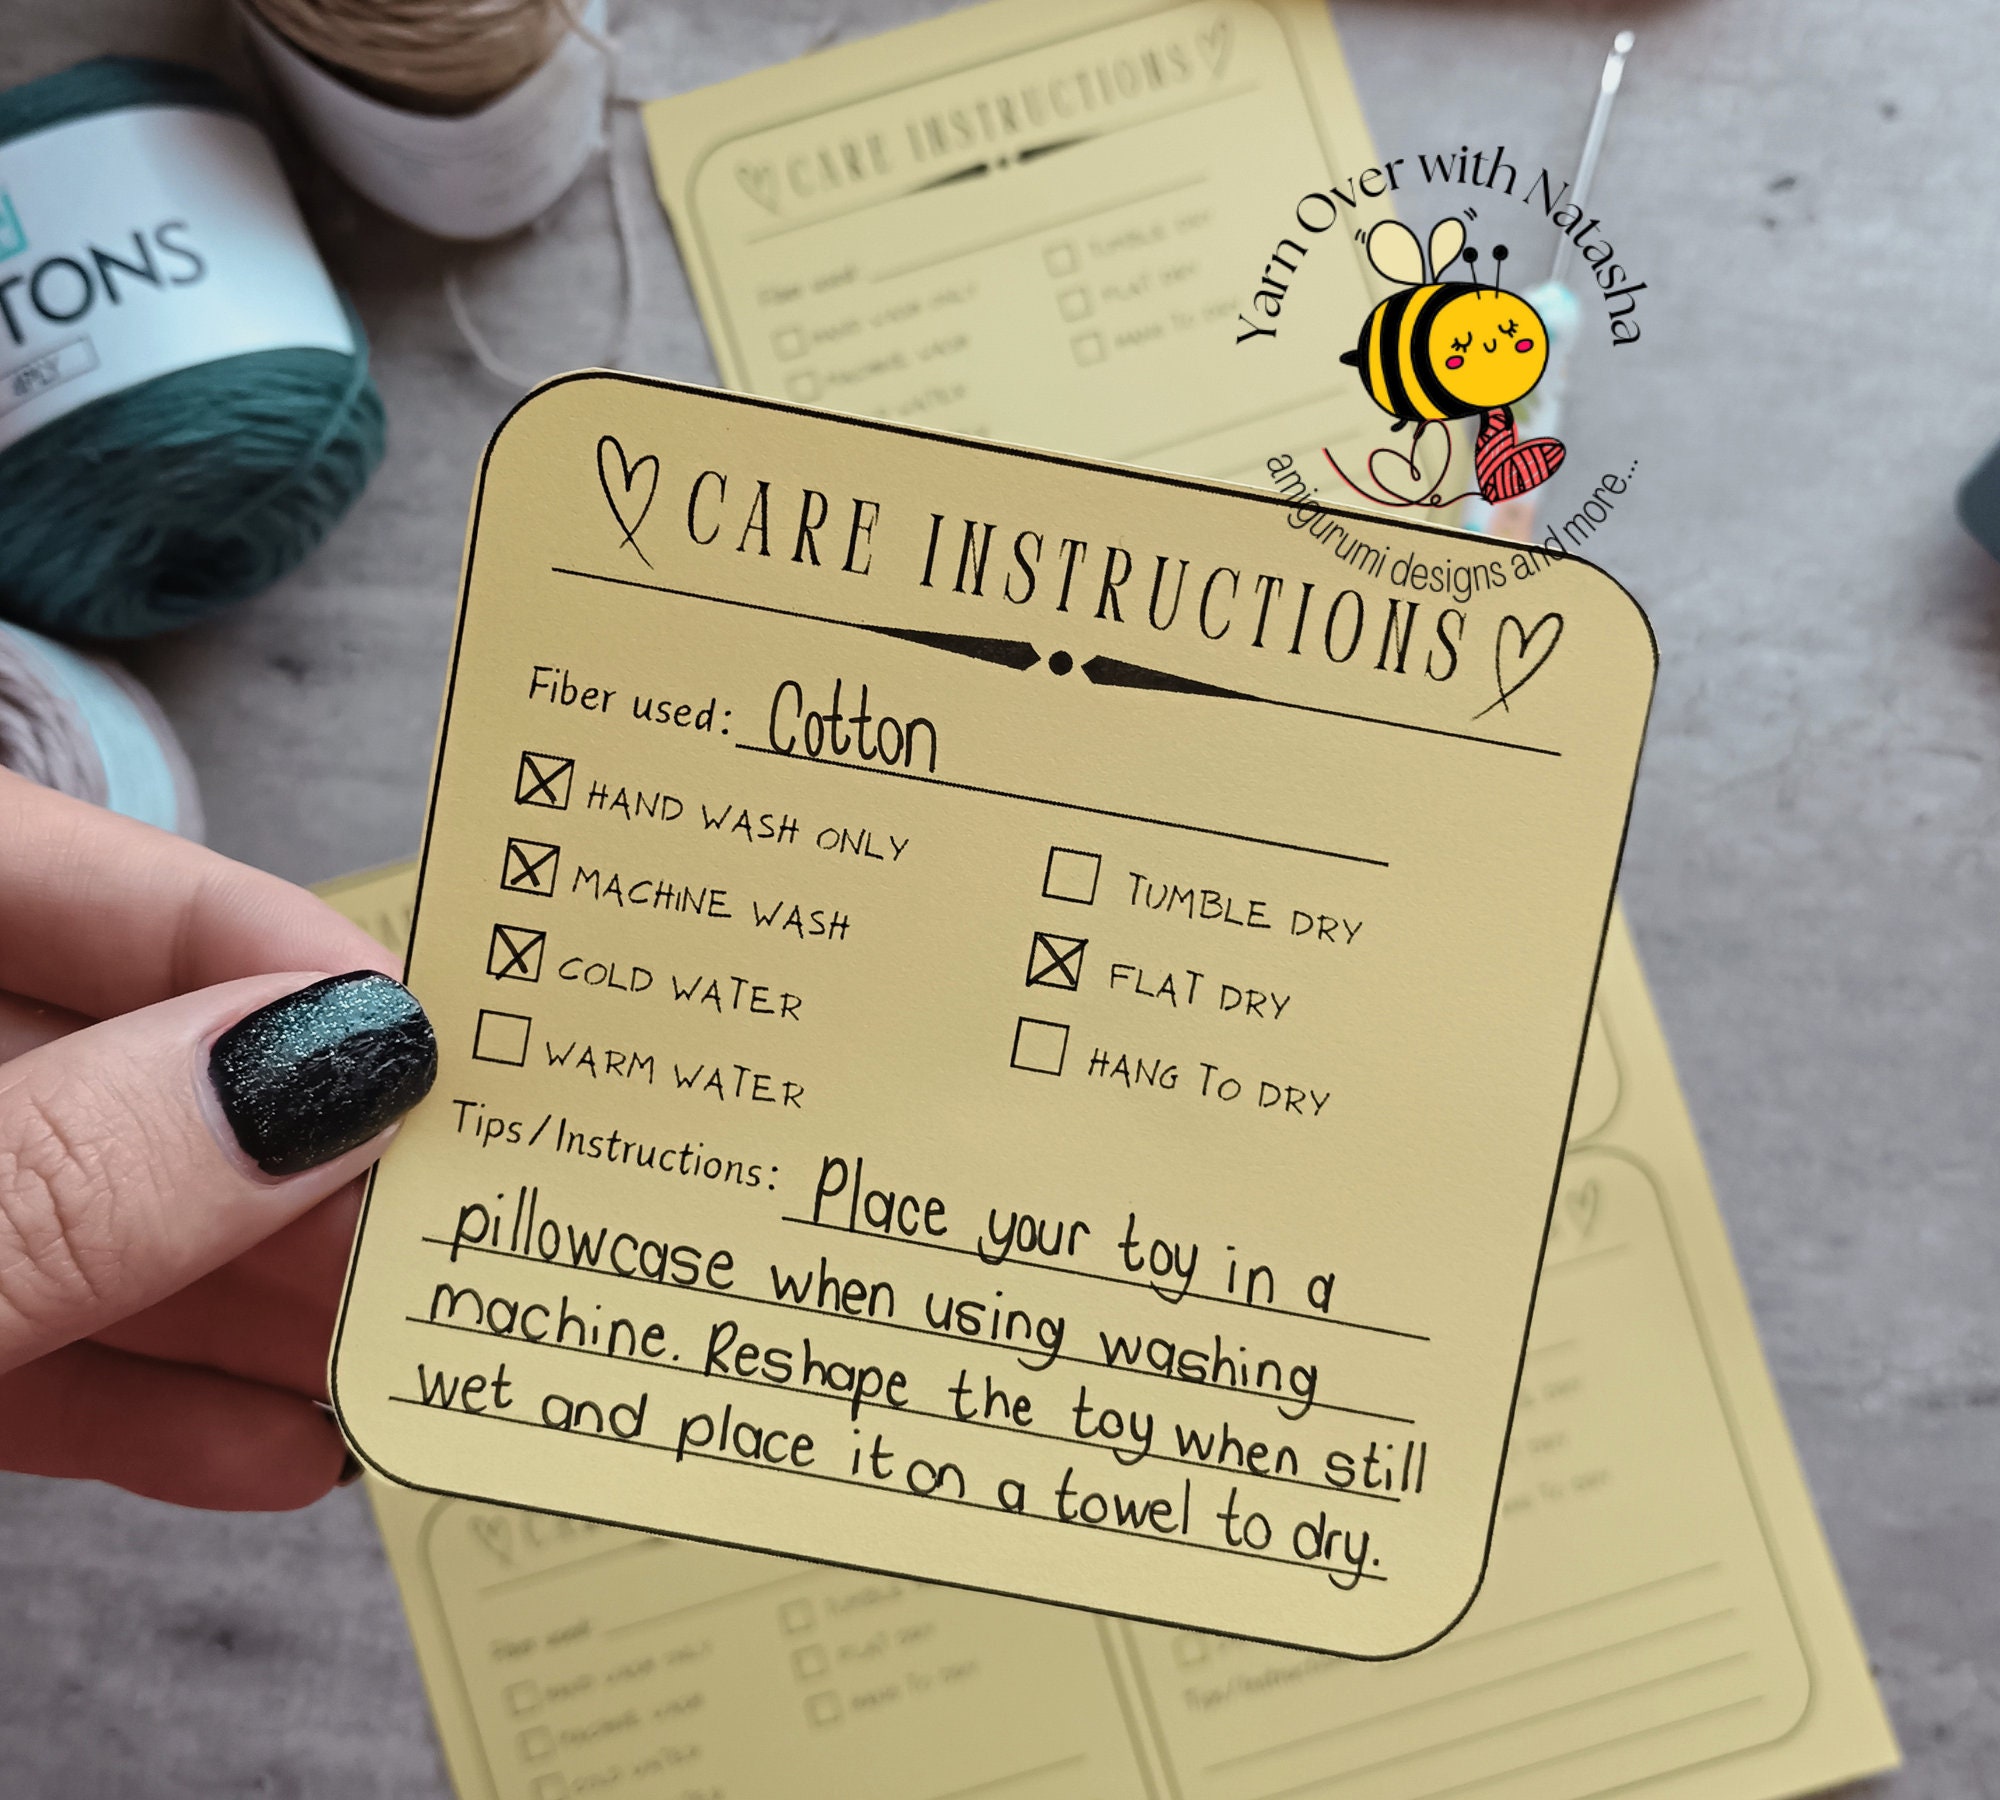 TONS
4PLY
CARE INSTRUCTIONS
Yarn Over with Natasha
amigurumi designs and more...
CARE INSTRUCTIONS
Fiber used: Cotton
HAND WASH ONLY
MACHINE WASH
COLD WATER
WARM WATER
TUMBLE DRY
FLAT DRY
HANG TO DRY
Tips/Instructions: Place your toy in a
pillowcase when using washing
machine. Reshape the toy when still
wet and place it on a towel to dry.